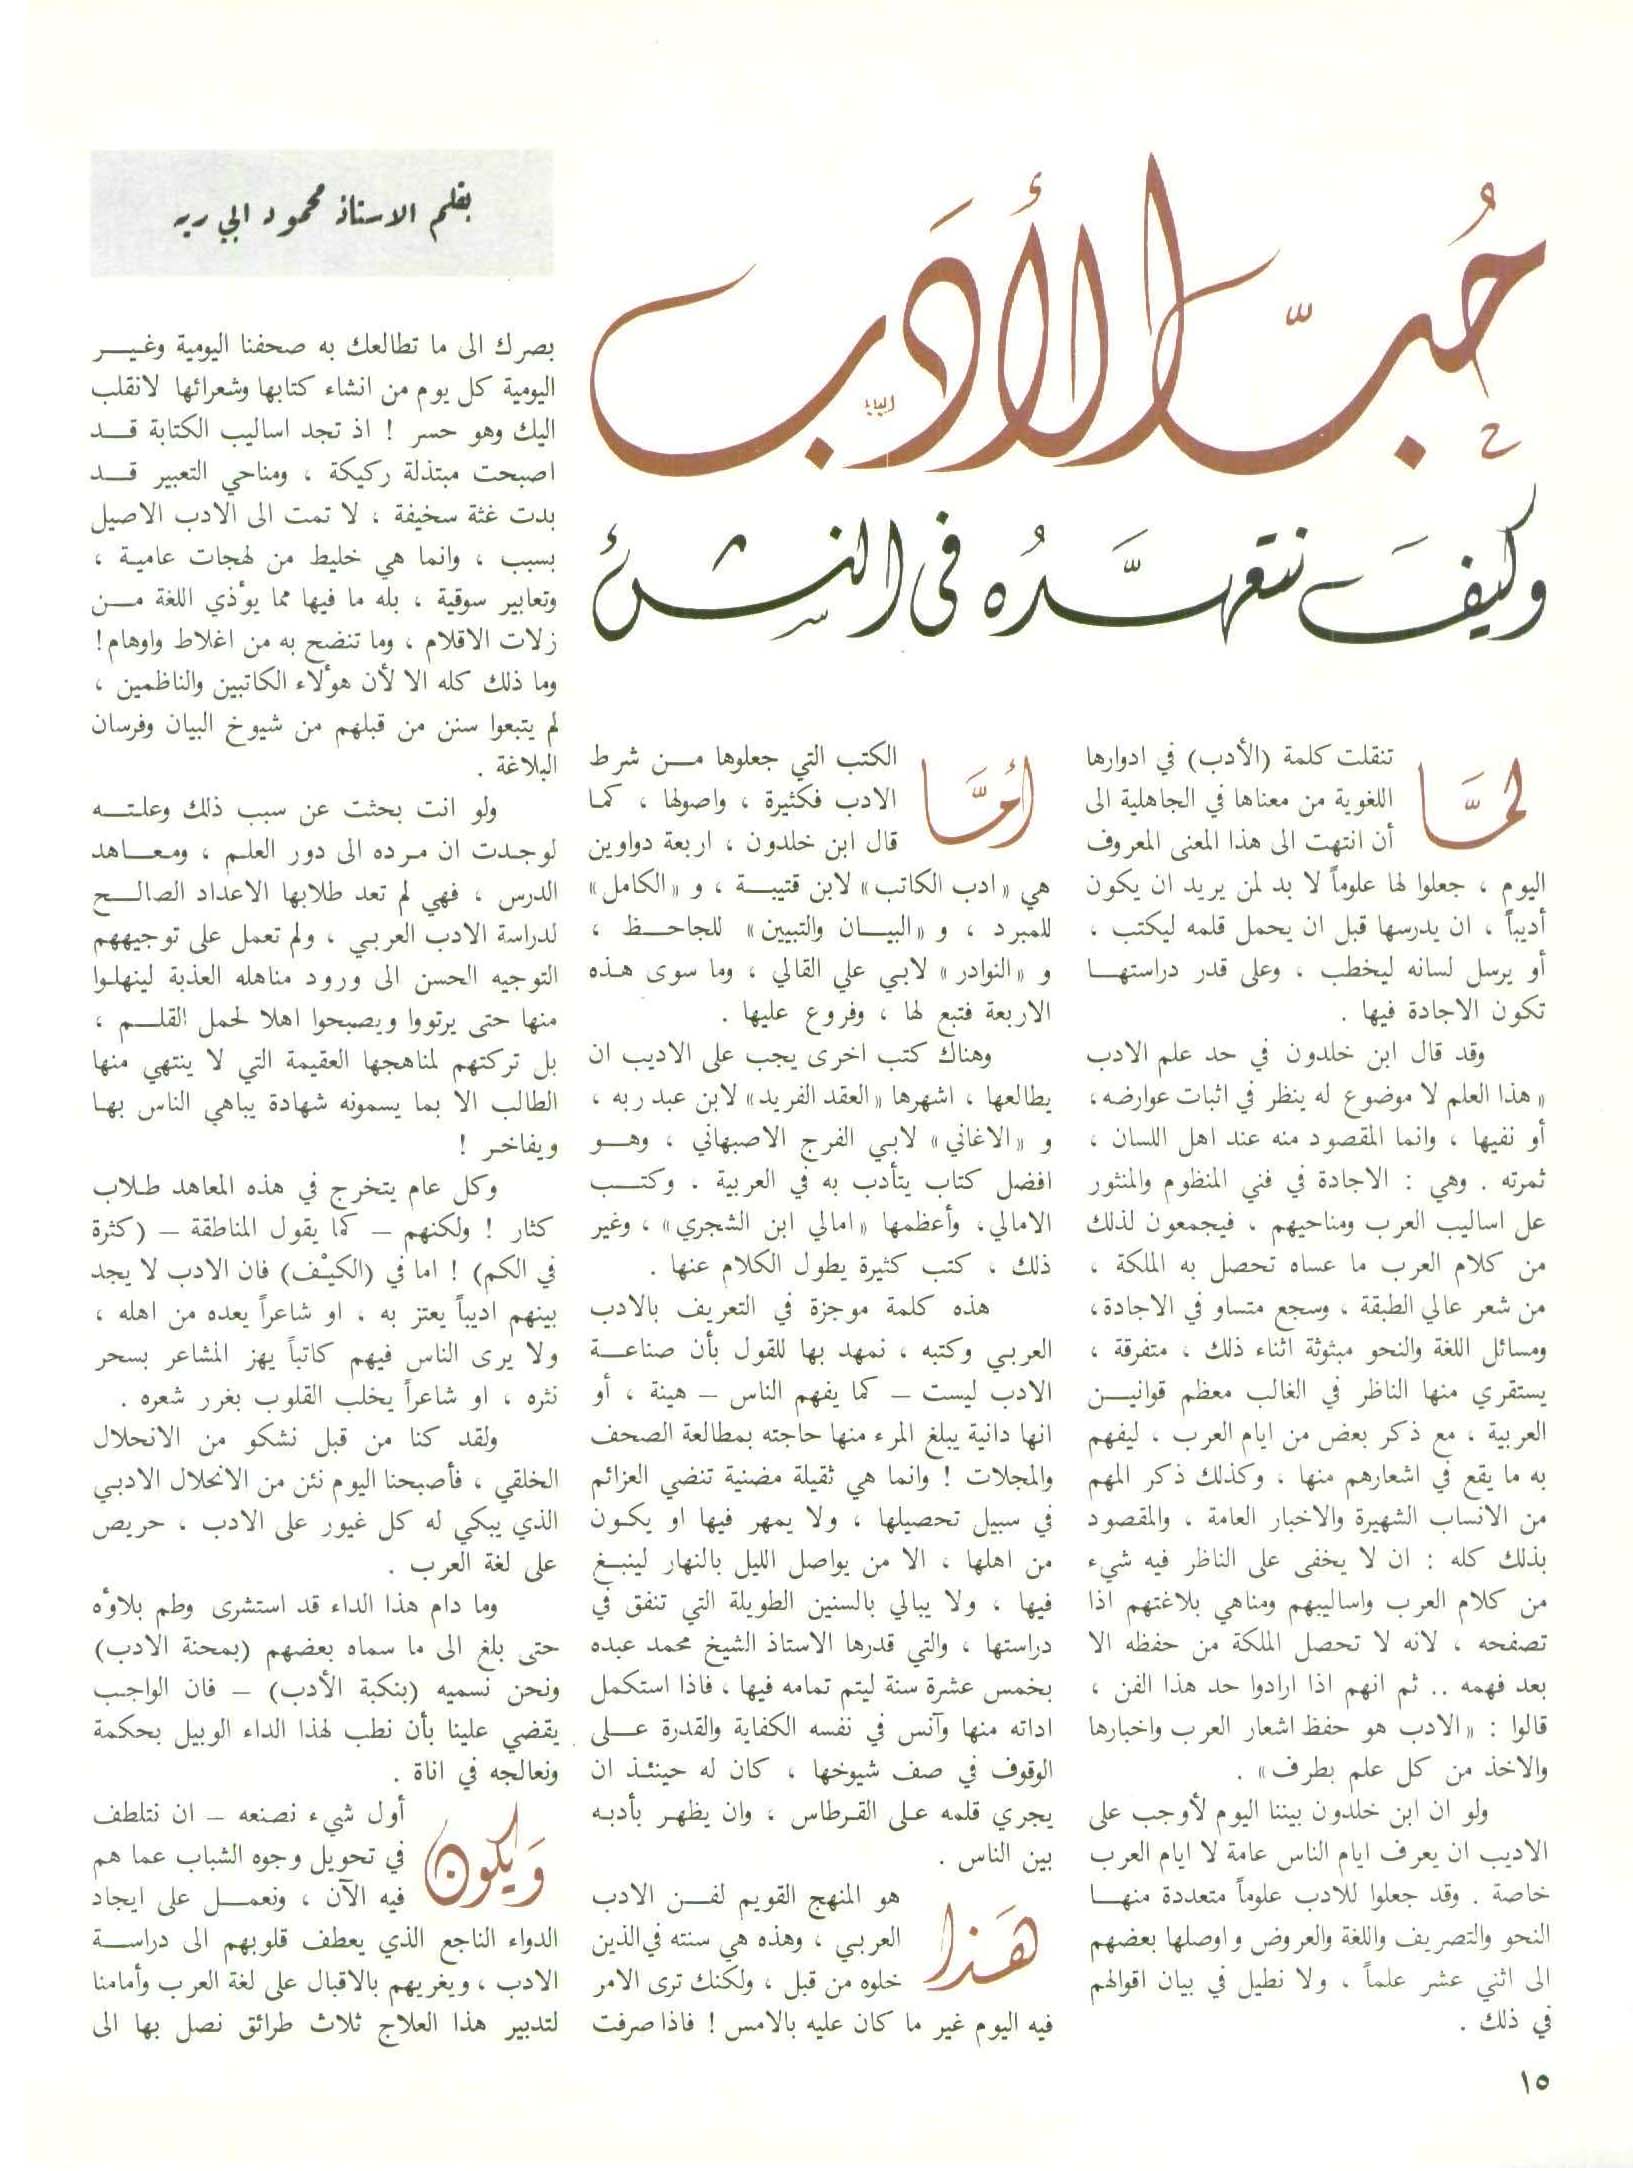 حُبّ الأدَب
وكيفَ نتعهَّدُه في النشْء
بقلم الاستاذ محمود ابي ريه
لمَّا
تنقلت كلمة (الأدب) في ادوارها
اللغوية من معناها في الجاهلية الى
أن انتهت الى هذا المعنى المعروف
اليوم ، جعلوا لها علوماً لا بد لمن يريد ان يكون
أديباً ، ان يدرسها قبل ان يحمل قلمه ليكتب ،
أو يرسل لسانه ليخطب ، وعلى قدر دراستهـا
تكون الاجادة فيها .
وقد قال ابن خلدون في حد علم الادب
« هذا العلم لا موضوع له ينظر في اثبات عوارضه،
أو نفيها ، وانما المقصود منه عند اهل اللسان ،
ثمرته . وهي : الاجادة في فني المنظوم والمنثور
عل اساليب العرب ومناحيهم ، فيجمعون لذلك
من كلام العرب ما عساه تحصل به الملكة ،
من شعر عالي الطبقة ، وسجع متساو في الاجادة،
ومسائل اللغة والنحو مبثوثة اثناء ذلك ، متفرقة ،
يستقري منها الناظر في الغالب معظم قوانيـن
العربية ، مع ذكر بعض من ايام العرب ، ليفهم
به ما يقع في اشعارهم منها ، وكذلك ذكر المهم
من الانساب الشهيرة والاخبار العامة ، والمقصود
بذلك كله : ان لا يخفى على الناظر فيه شيء
من كلام العرب واساليبهم ومناهي بلاغتهم اذا
تصفحه ، لانه لا تحصل الملكة من حفظه الا
بعد فهمه .. ثم انهم اذا ارادوا حد هذا الفن ،
قالوا : « الادب هو حفظ اشعار العرب واخبارها
والاخذ من كل علم بطرف » .
ولو ان ابن خلدون بيننا اليوم لأوجب على
الاديب ان يعرف ايام الناس عامة لا ايام العرب
خاصة . وقد جعلوا للادب علوماً متعددة منهـا
النحو والتصريف واللغة والعروض واوصلها بعضهم
الى اثني عشر علماً ، ولا نطيل في بيان اقوالهم
في ذلك .
أمَّا
الكتب التي جعلوها مـن شرط
الادب فكثيرة ، واصولها ، كمـا
قال ابن خلدون ، اربعة دواوين
هي « ادب الكاتب » لابن قتيبـة ، و « الكامل »
للمبرد ، و « البيـان والتبيين » للجاحـظ ،
و « النوادر » لابـي علي القالي ، وما سوى هـذه
الاربعة فتبع لها ، وفروع عليها .
وهناك كتب اخرى يجب على الاديب ان
يطالعها ، اشهرها « العقد الفريد » لابن عبد ربه ،
و « الاغاني » لابـي الفرج الاصبهاني ، وهـو
افضل كتاب يتأدب به في العربية ، وكتـب
الامالي، وأعظمها « امالي ابن الشجري » ، وغير
ذلك ، كتب كثيرة يطول الكلام عنها .
هذه كلمة موجزة في التعريف بالادب
العربـي وكتبه ، نمهد بها للقول بأن صناعـة
الادب ليست – كما يفهم الناس – هينة ، أو
انها دانية يبلغ المرء منها حاجته بمطالعة الصحف
والمجلات ! وانما هي ثقيلة مضنية تنضي العزائم
في سبيل تحصيلها ، ولا يمهر فيها او يكـون
من اهلها ، الا من يواصل الليل بالنهار لينبـغ
فيها ، ولا يبالي بالسنين الطويلة التي تنفق في
دراستها ، والتي قدرها الاستاذ الشيخ محمد عبده
بخمس عشرة سنة ليتم تمامه فيها ، فاذا استكمل
اداته منها وآنس في نفسه الكفاية والقدرة علـى
الوقوف في صف شيوخها ، كان له حينئـذ ان
يجري قلمه علـى القـرطاس ، وان يظهـر بأدبـه
بين الناس .
هَذا
هو المنهج القويم لفـن الادب
العربـي ، وهذه هي سنته في الذين
خلوه من قبل ، ولكنك ترى الامر
فيه اليوم غير ما كان عليه بالامس ! فاذا صرفت
بصرك الى ما تطالعك به صحفنا اليومية وغـيـر
اليومية كل يوم من انشاء كتابها وشعرائها لانقلب
اليك وهو حسر ! اذ تجد اساليب الكتابة قـد
اصبحت مبتذلة ركيكة ، ومناحي التعبير قـد
بدت غثة سخيفة ، لا تمت الى الادب الاصيل
بسبب ، وانما هي خليط من لهجات عاميـة ،
وتعابير سوقية ، بله ما فيها مما يؤذي اللغة مـن
زلات الاقلام ، وما تنضح به من اغلاط واوهام !
وما ذلك كله الا لأن هؤلاء الكاتبين والناظمين ،
لم يتبعوا سنن من قبلهم من شيوخ البيان وفرسان
البلاغة .
ولو انت بحثت عن سبب ذلك وعلـتـه
لوجـدت ان مـرده الى دور العلـم ، ومعـاهد
الدرس ، فهي لم تعد طلابها الاعداد الصالـح
لدراسة الادب العربـي ، ولم تعمل على توجيههم
التوجيه الحسن الى ورود مناهله العذبة لينهلـوا
منها حتى يرتووا ويصبحوا اهلا لحمل القلـم ،
بل تركتهم لمناهجها العقيمة التي لا ينتهي منها
الطالب الا بما يسمونه شهادة يباهي الناس بهـا
ويفاخـر !
وكل عام يتخرج في هذه المعاهد طـلاب
كثار ! ولكنهم – كما يقول المناطقة – (كثرة
في الكم) ! اما في (الكيْف) فان الادب لا يجد
بينهم اديباً يعتز به ، او شاعراً يعده من اهله ،
ولا يرى الناس فيهم كاتباً يهز المشاعر بسحر
نثره ، او شاعراً يخلب القلوب بغرر شعره .
ولقد كنا من قبل نشكو من الانحلال
الخلقي ، فأصبحنا اليوم نئن من الانحلال الادبـي
الذي يبكي له كل غيور على الادب ، حريص
على لغة العرب .
وما دام هذا الداء قد استشرى وطم بلاؤه
حتى بلغ الى ما سماه بعضهم (بمحنة الادب)
ونحن نسميه (بنكبة الأدب) – فان الواجـب
يقضي علينا بأن نطب لهذا الداء الوبيل بحكمة
ونعالجه في اناة .
وَيكون
أول شيء نصنعه – ان نتلطف
في تحويل وجوه الشباب عما هم
فيه الآن ، ونعمـل على ايجاد
الدواء الناجع الذي يعطف قلوبهم الى دراسـة
الادب ، ويغريهم بالاقبال على لغة العرب وأمامنا
لتدبير هذا العلاج ثلاث طرائق نصل بها الى
١٥